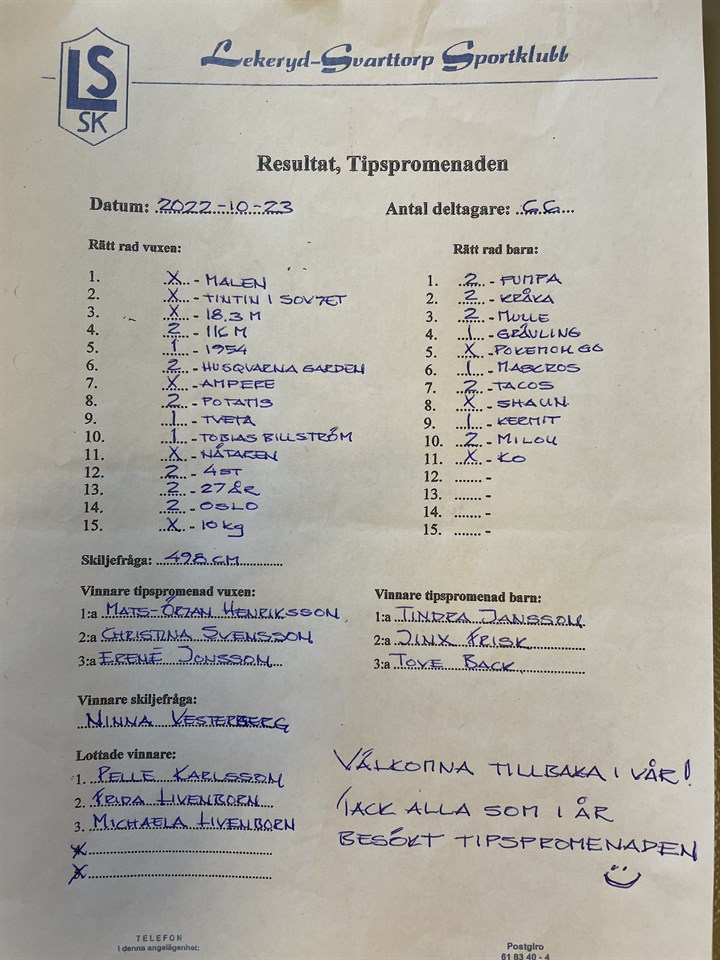 LS
SK
Lekeryd-Svarttorp Sportklubb
Resultat, Tipspromenaden
Datum: 2022-10-23 Antal deltagare: 66
Rätt rad vuxen: Rätt rad barn:
1. X - MALEN 1. 2 - PUMPA
2. X - TINTIN I SOVJET 2. 2 - KRÅKA
3. X - 18.3 M 3. 2 - MULLE
4. 2 - 116 M 4. 1 - GRÄVLING
5. 1 - 1954 5. X - POKEMON GO
6. 2 - HUSQVARNA GARDEN 6. 1 - MASCROS
7. X - AMPERE 7. 2 - TACOS
8. 2 - POTATIS 8. X - SHAUN
9. 1 - TVETA 9. 1 - KERMIT
10. 1 - TOBIAS BILLSTRÖM 10. 2 - MILOU
11. X - NÄTAREN 11. X - KO
12. 2 - 4 ST 12. ....... -
13. 2 - 27 ÅR 13. ....... -
14. 2 - OSLO 14. ....... -
15. X - 10 kg 15. ....... -
Skiljefråga: 498 CM
Vinnare tipspromenad vuxen: Vinnare tipspromenad barn:
1:a MATS-ÖRJAN HENRIKSSON 1:a TINDRA JANSSON
2:a CHRISTINA SVENSSON 2:a JINX FRISK
3:a ERENÉ JONSSON 3:a TOVE BACK
Vinnare skiljefråga:
NINNA VESTERBERG
Lottade vinnare:
1. PELLE KARLSSON
2. FRIDA LIVENBORN
3. MICHAELA LIVENBORN
VÄLKOMNA TILLBAKA I VÅR!
TACK ALLA SOM I ÅR
BESÖKT TIPSPROMENADEN
TELEFON
I denna angelägenhet:
Postgiro
61 83 40 - 4